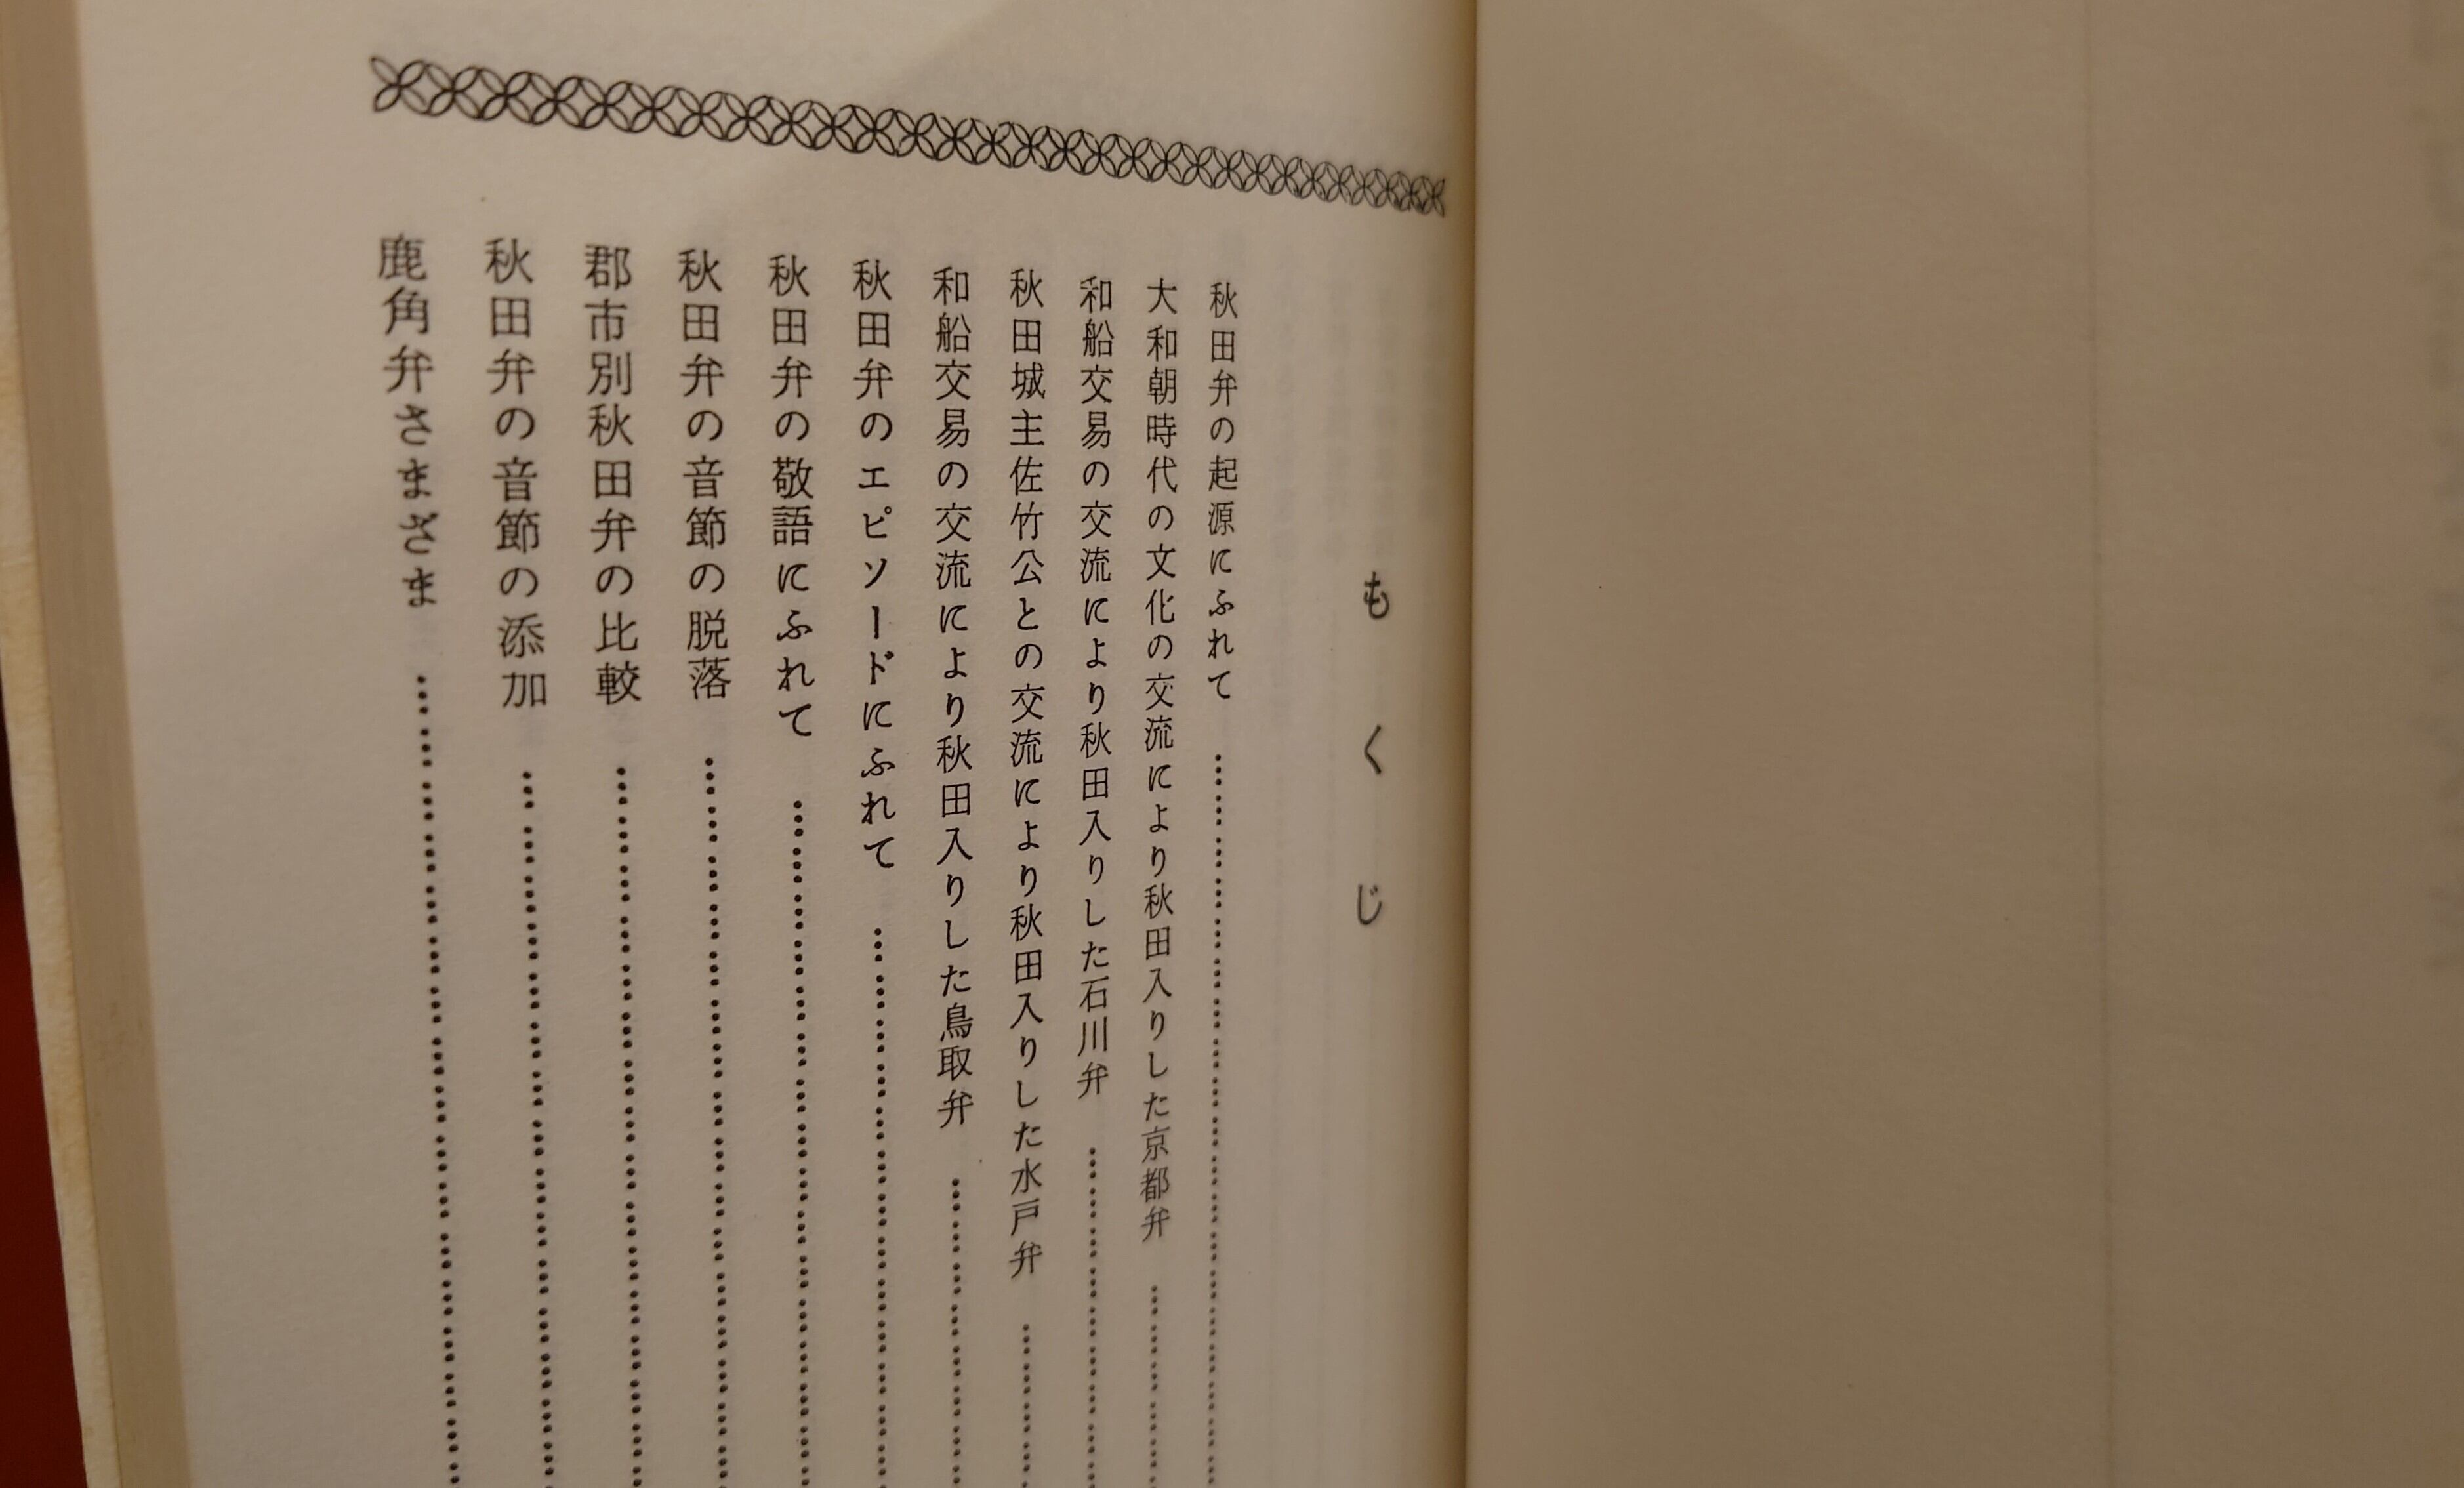 もくじ
秋田弁の起源にふれて
大和朝時代の文化の交流により秋田入りした京都弁
和船交易の交流により秋田入りした石川弁
秋田城主佐竹公との交流により秋田入りした水戸弁
和船交易の交流により秋田入りした鳥取弁
秋田弁のエピソードにふれて
秋田弁の敬語にふれて
秋田弁の音節の脱落
郡市別秋田弁の比較
秋田弁の音節の添加
鹿角弁さまざま